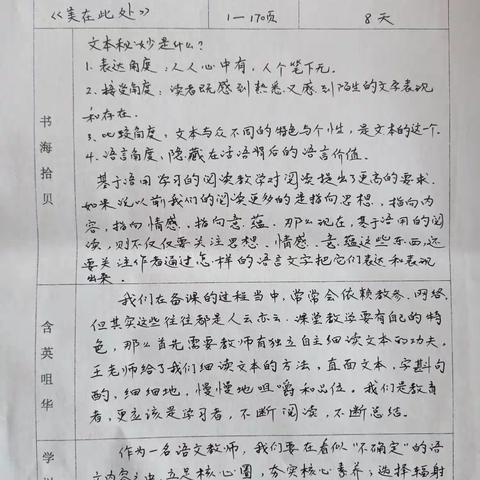 《美在此处》 1—170页 8天
书海拾贝
文本秘妙是什么?
1、表达角度:人人心中有,人个笔下无.
2、接受角度:读者既感到熟悉又感到陌生的文字表现
和存在.
3、比较角度,文本与众不同的特色与个性,是文本的这一个.
4、语言角度,隐藏在话语背后的语言价值.
基于语用学习的阅读教学对阅读提出了更高的要求.
如果说以前我们的阅读更多的是指向思想、指向内
容,指向情感、指向意蕴.那么现在,基于语用的阅
读,则不仅仅要关注思想、情感、意蕴这些东西,还
要关注作者通过怎样的语言文字把它们表达和表现
出来.
含英咀华
我们在备课的过程当中,常常会依赖教参、网络.
但其实这些往往都是人云亦云.课堂教学要有自己的特
色,那么首先需要教师有独立自主细读文本的功夫.
王老师给了我们细读文本的方法,直面文本,字斟句
酌,细细地,慢慢地咀嚼和品位.我们是教育
者,更应该是学习者,不断阅读,不断总结.
学
作为一名语文教师,我们要在看似“不确定”的语
文内容之中,立足核心圈,夯实核心素养;选择辐射